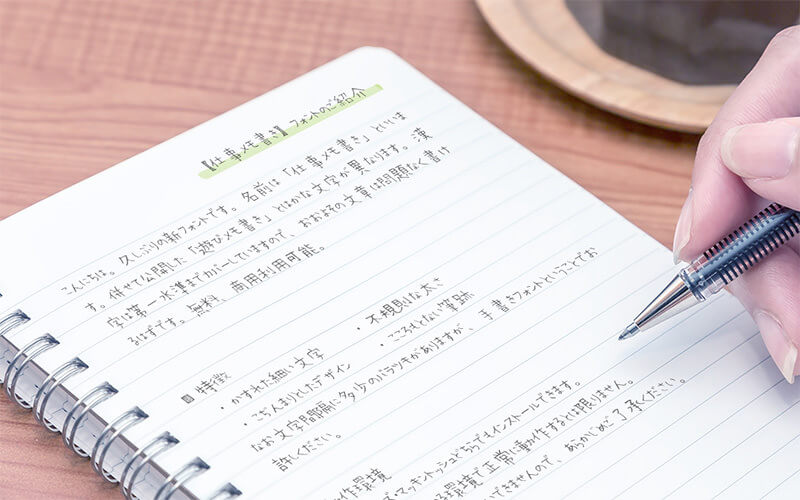 【仕事メモ書き】フォントのご紹介
こんにちは。久しぶりの新フォントです。名前は「仕事メモ書き」といいま
す。併せて公開した「遊びメモ書き」とはかな文字が異なります。漢
字は第一水準までカバーしていますので、おおよその文章は問題なく書け
るはずです。無料、商用利用可能。
■ 特徴
・かすれた細い文字 ・不規則な太さ
・こぢんまりとしたデザイン ・こころもとない筆跡
なお文字間隔に多少のバラツキがありますが、手書きフォントということでお
許しください。
作環境
ズ・マッキントッシュどちらでもインストールできます。
る環境で正常に動作するとは限りません。
できませんので、あらかじめご了承ください。